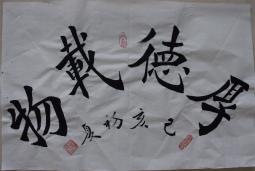 厚德載物
己亥初夏